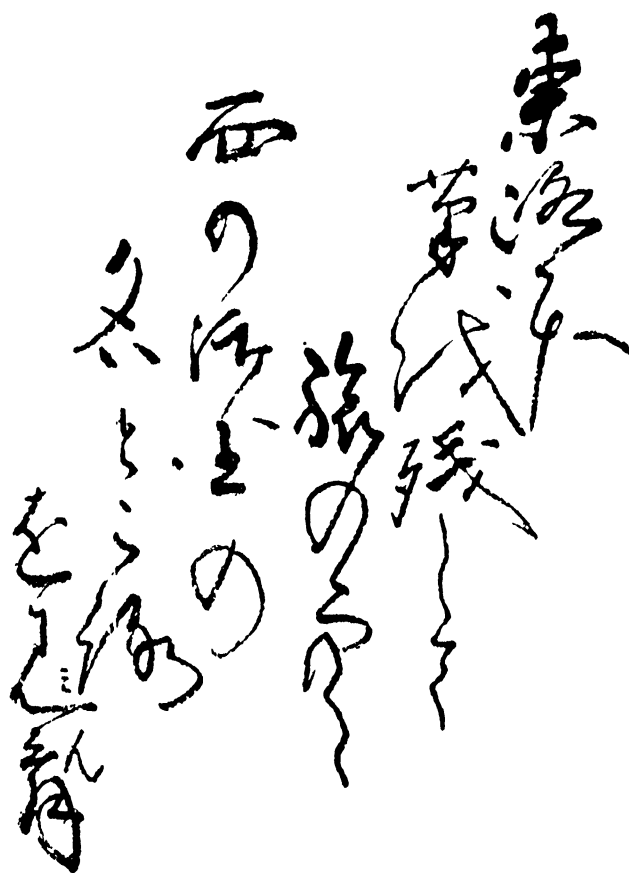 東路へ
筆を残して
旅のそら
西の御国の
名ところ
を